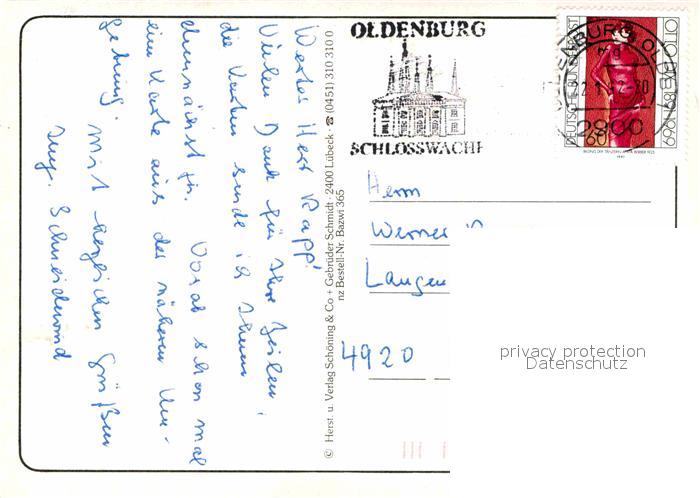 Wertes Herr Rapp!
Vielen Dank für Ihre Zeilen,
die Karten sende ich Ihnen
demnächst zu. Vorab schon mal
eine Karte aus der näheren Um-
gebung. Mit herzlichen Grüßen
Ing. Schneidewind
© Herst. u. Verlag Schöning & Co + Gebrüder Schmidt · 2400 Lübeck · ☎ (0451) 310 310 0
nz Bestell-Nr. Bazwi 365
OLDENBURG
SCHLOSSWACHE
OLDENBURG O
2900
DEUTSCHE BUNDESPOST
60
OTTO DIX 1891-1969
Herrn
Werner
Langen
4920
privacy protection
Datenschutz